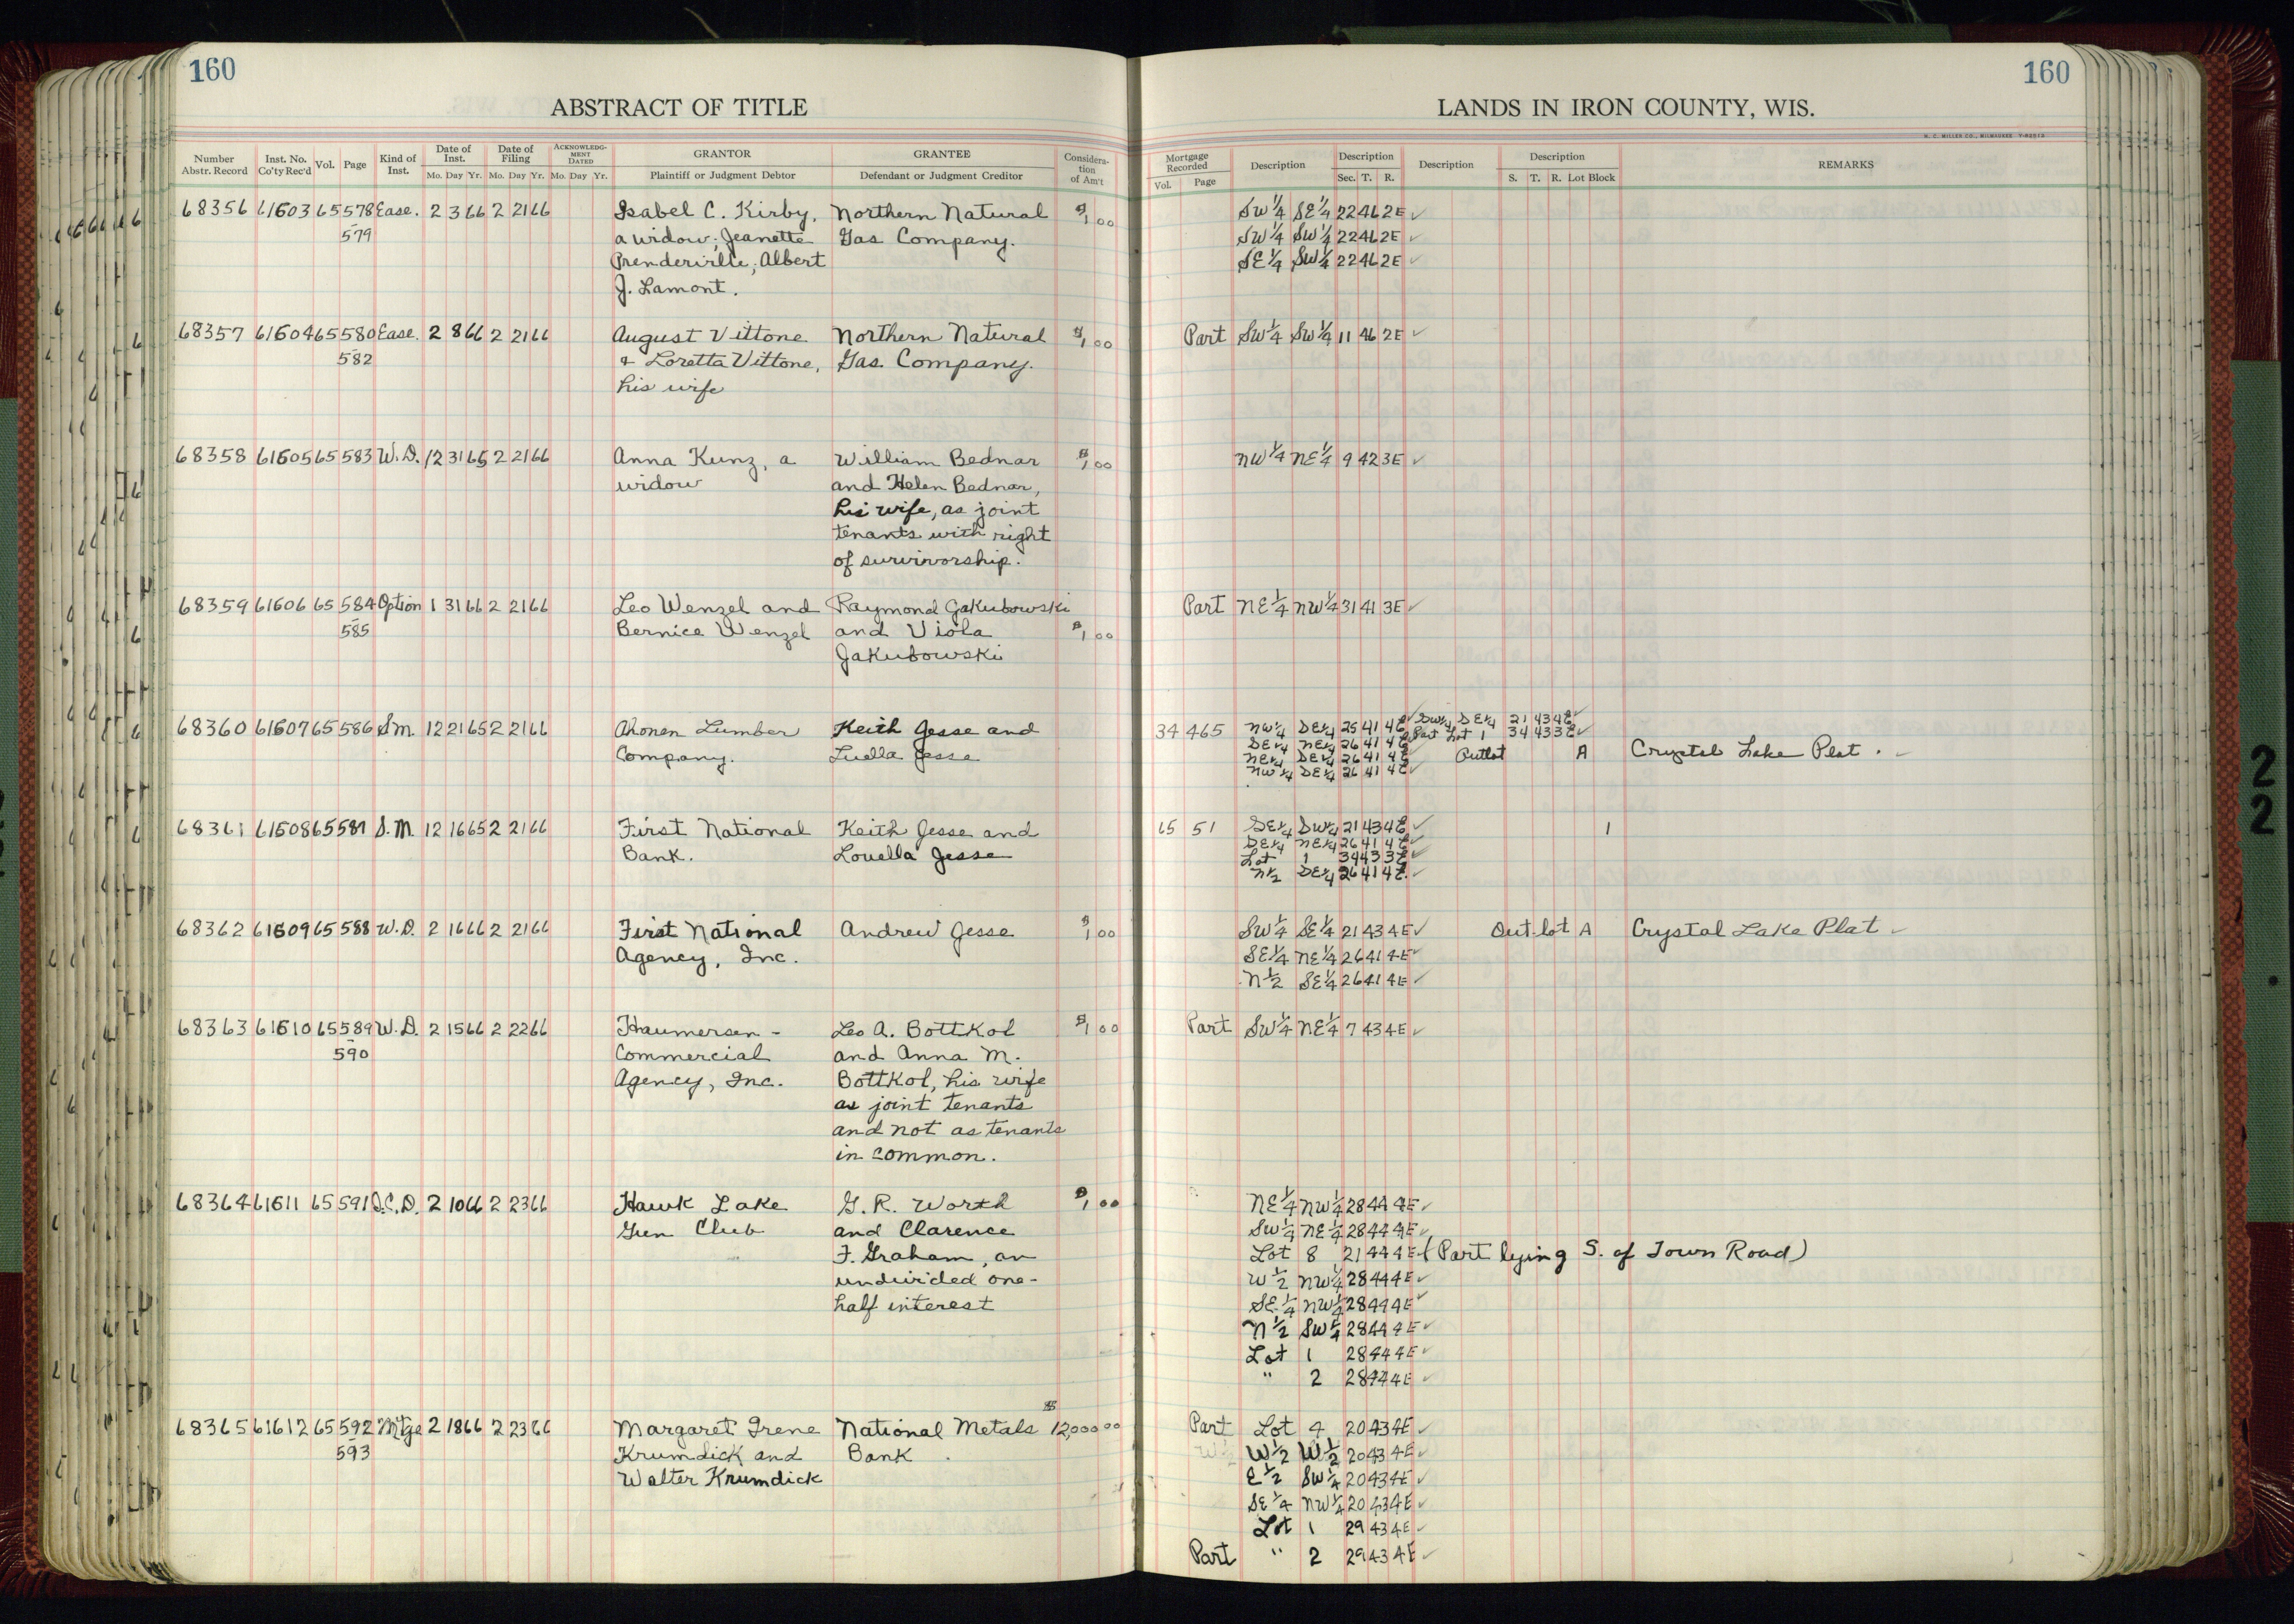 160
ABSTRACT OF TITLE
Number Abstr. Record Inst. No. Co'ty Rec'd Vol. Page Kind of Inst. Date of Inst. Mo. Day Yr. Date of Filing Mo. Day Yr. ACKNOWLEDGMENT DATED Mo. Day Yr. GRANTOR Plaintiff or Judgment Debtor GRANTEE Defendant or Judgment Creditor Consideration of Am't
68356 61603 65 578 Ease. 2 3 66 2 21 66 Isabel C. Kirby, Northern Natural $1.00
579 a widow; Jeanette Gas Company.
Prenderville; Albert
J. Lamont.
68357 61604 65 580 Ease. 2 8 66 2 21 66 August Vittone Northern Natural $1.00
582 & Loretta Vittone, Gas. Company.
his wife
68358 61605 65 583 W.D. 12 31 65 2 21 66 Anna Kunz, a William Bednar $1.00
widow and Helen Bednar,
his wife, as joint
tenants with right
of survivorship.
68359 61606 65 584 Option 1 31 66 2 21 66 Leo Wenzel and Raymond Jakubowski
585 Bernice Wenzel and Viola $1.00
Jakubowski
68360 61607 65 586 S.M. 12 21 65 2 21 66 Ahonen Lumber Keith Jesse and
Company. Luella Jesse
68361 61608 65 587 S.M. 12 16 65 2 21 66 First National Keith Jesse and
Bank. Louella Jesse
68362 61609 65 588 W.D. 2 16 66 2 21 66 First National Andrew Jesse $1.00
Agency, Inc.
68363 61610 65 589 W.D. 2 15 66 2 22 66 Haumersen - Leo A. Bottkol $1.00
590 Commercial and Anna M.
Agency, Inc. Bottkol, his wife
as joint tenants
and not as tenants
in common.
68364 61611 65 591 2 10 66 2 23 66 Hawk Lake G. R. Worth $1.00
Gun Club and Clarence
F. Graham, an
undivided one-
half interest
68365 61612 65 592 Mtge 2 18 66 2 23 66 Margaret Irene National Metals $12,000.00
593 Krumdick and Bank
Walter Krumdick
160
LANDS IN IRON COUNTY, WIS.
H. C. MILLER CO., MILWAUKEE
Mortgage Recorded Vol. Page Description Description Sec. T. R. Description Description S. T. R. Lot Block REMARKS
SW 1/4 SE 1/4 22 46 2E ✓
SW 1/4 SW 1/4 22 46 2E ✓
SE 1/4 SW 1/4 22 46 2E ✓
Part SW 1/4 SW 1/4 11 46 2E ✓
NW 1/4 NE 1/4 9 42 3E ✓
Part NE 1/4 NW 1/4 31 41 3E ✓
34 465 NW 1/4 SE 1/4 25 41 4E ✓ SW 1/4 SE 1/4 21 43 4E ✓
SE 1/4 NE 1/4 26 41 4E Part Lot 1 34 43 3E ✓
NE 1/4 SE 1/4 26 41 4E Outlot A Crystal Lake Plat. ✓
NW 1/4 SE 1/4 26 41 4E ✓
65 51 SE 1/4 SW 1/4 21 43 4E ✓ 1
SE 1/4 NE 1/4 26 41 4E ✓
Lot 1 34 43 3E ✓
N 1/2 SE 1/4 26 41 4E. ✓
SW 1/4 SE 1/4 21 43 4E ✓ Out lot A Crystal Lake Plat ✓
SE 1/4 NE 1/4 26 41 4E ✓
N 1/2 SE 1/4 26 41 4E ✓
Part SW 1/4 NE 1/4 7 43 4E ✓
NE 1/4 NW 1/4 28 44 4E ✓
SW 1/4 NE 1/4 28 44 4E ✓
Lot 8 21 44 4E (Part lying S. of Town Road)
W 1/2 NW 1/4 28 44 4E ✓
SE 1/4 NW 1/4 28 44 4E ✓
N 1/2 SW 1/4 28 44 4E ✓
Lot 1 28 44 4E ✓
" 2 28 44 4E ✓
Part Lot 4 20 43 4E ✓
W 1/2 W 1/2 20 43 4E ✓
E 1/2 SW 1/4 20 43 4E ✓
SE 1/4 NW 1/4 20 43 4E ✓
Lot 1 29 43 4E ✓
Part " 2 29 43 4E ✓